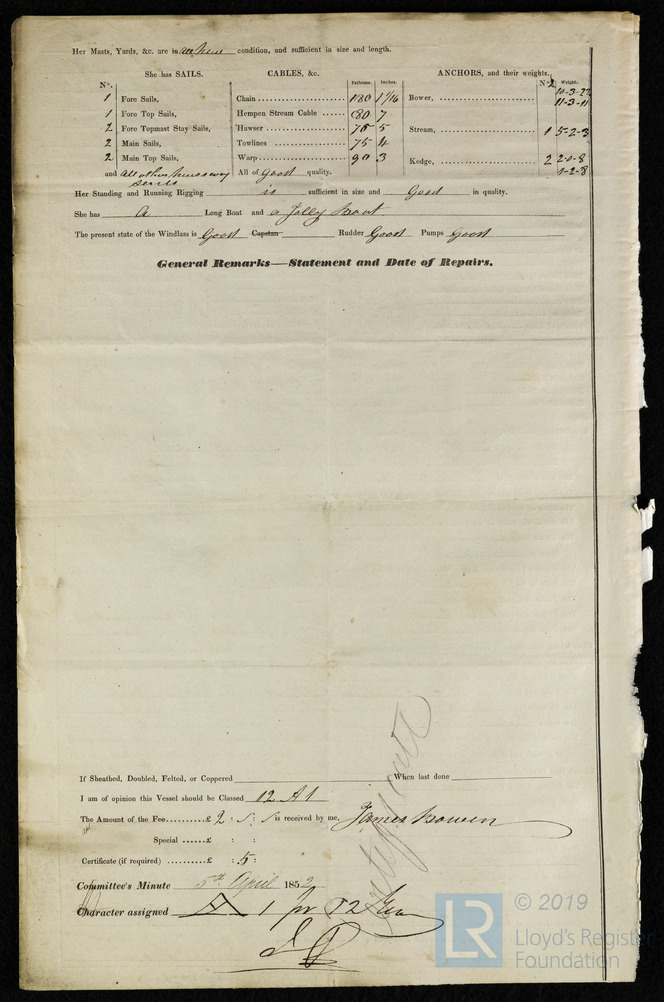 Her Masts, Yards, &c. are in all new condition, and sufficient in size and length.
She has SAILS.
CABLES, &c.
ANCHORS, and their weights.
N°.
Fathoms. Inches.
N° 2 Weight.
1 Fore Sails,
Chain 180 1 1/16
Bower, 10-3-22
11-3-11
1 Fore Top Sails,
Hempen Stream Cable 80 7
2 Fore Topmast Stay Sails,
Hawser 75 5
Stream, 1 5-2-3
2 Main Sails,
Towlines 75 4
2 Main Top Sails,
Warp 90 3
Kedge, 2 2-0-8
1-2-8
and All other necessary Sails
All of Good quality.
Her Standing and Running Rigging is sufficient in size and Good in quality.
She has A Long Boat and a Jolly Boat
The present state of the Windlass is Good Capstan Rudder Good Pumps Good
General Remarks—Statement and Date of Repairs.
If Sheathed, Doubled, Felted, or Coppered When last done
I am of opinion this Vessel should be Classed 12 A1
The Amount of the Fee £ 2 : : is received by me, James Bowen
Special £ : :
Certificate (if required) £ : 5 :
Committee's Minute 5th April 1852
Character assigned A 1 for 12 Years
LR © 2019
Lloyd's Register
Foundation